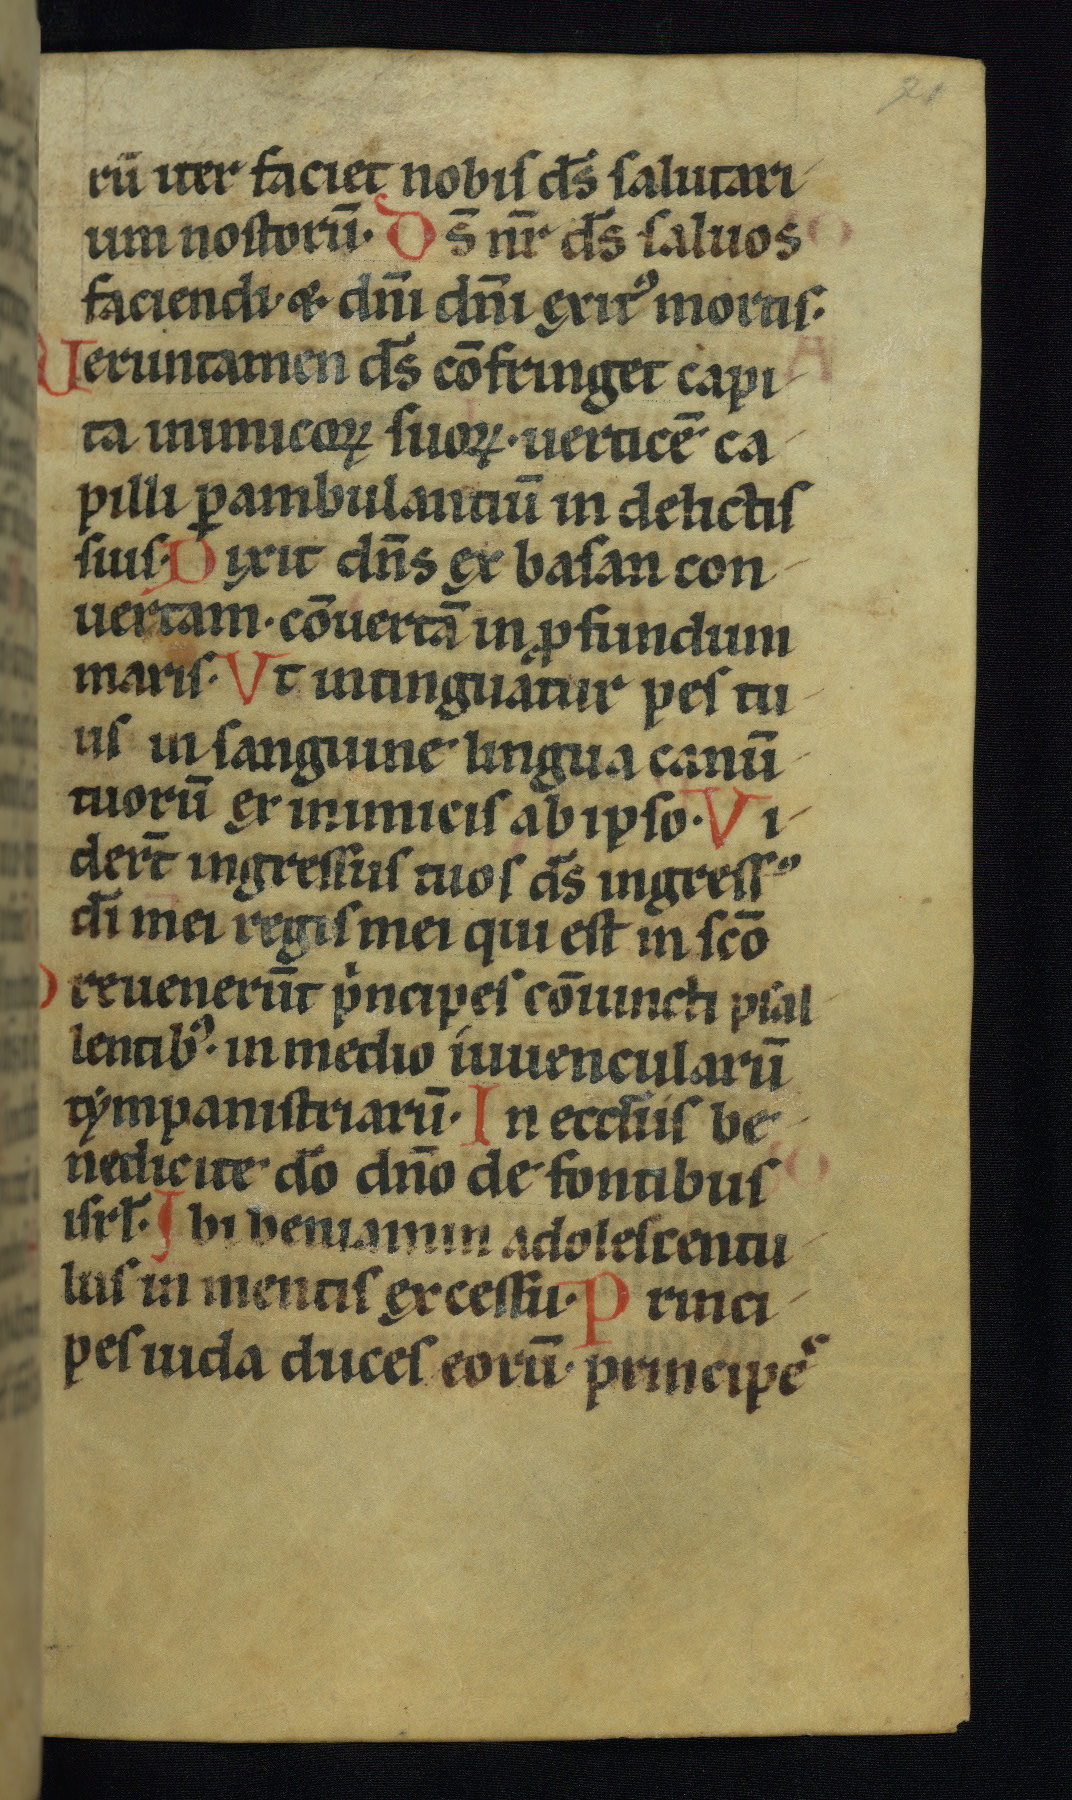 21
rū iter faciet nobis d̄s salutari
um nostorū. D s̄ nr̄ d̄s saluos
faciendi. & dn̄i dn̄i exitꝰ mortis.
Ueruntamen d̄s cōfringet capi
ta inimicoꝝ suoꝝ. uerticē ca
pilli ꝑambulantiū in delictis
suis. D ixit dn̄s ex basan con
uertam. cōuertā in ꝓfundum
maris. V t intinguātur pes tu
us in sanguine lingua canū
tuorū ex inimicis ab ipso. V i
der̄t ingressus tuos d̄s ingressꝰ
d̄i mei regis mei qui est in sc̄o
Preuenerūt pͥncipes cōiuncti psal
lentibꝰ. in medio iuuencularū
tympanistriarū. I n eccl̄iis be
nedicite d̄o dn̄o de fontibus
isrl̄. I bi beniamin adolescentu
lus in mentis excessu. P rinci
pes iuda duces eorū. principes